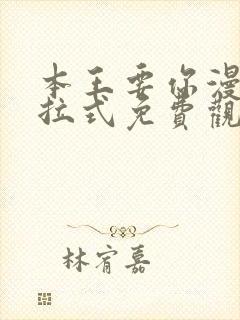 本王要你漫
拉式免費觀
林宥嘉